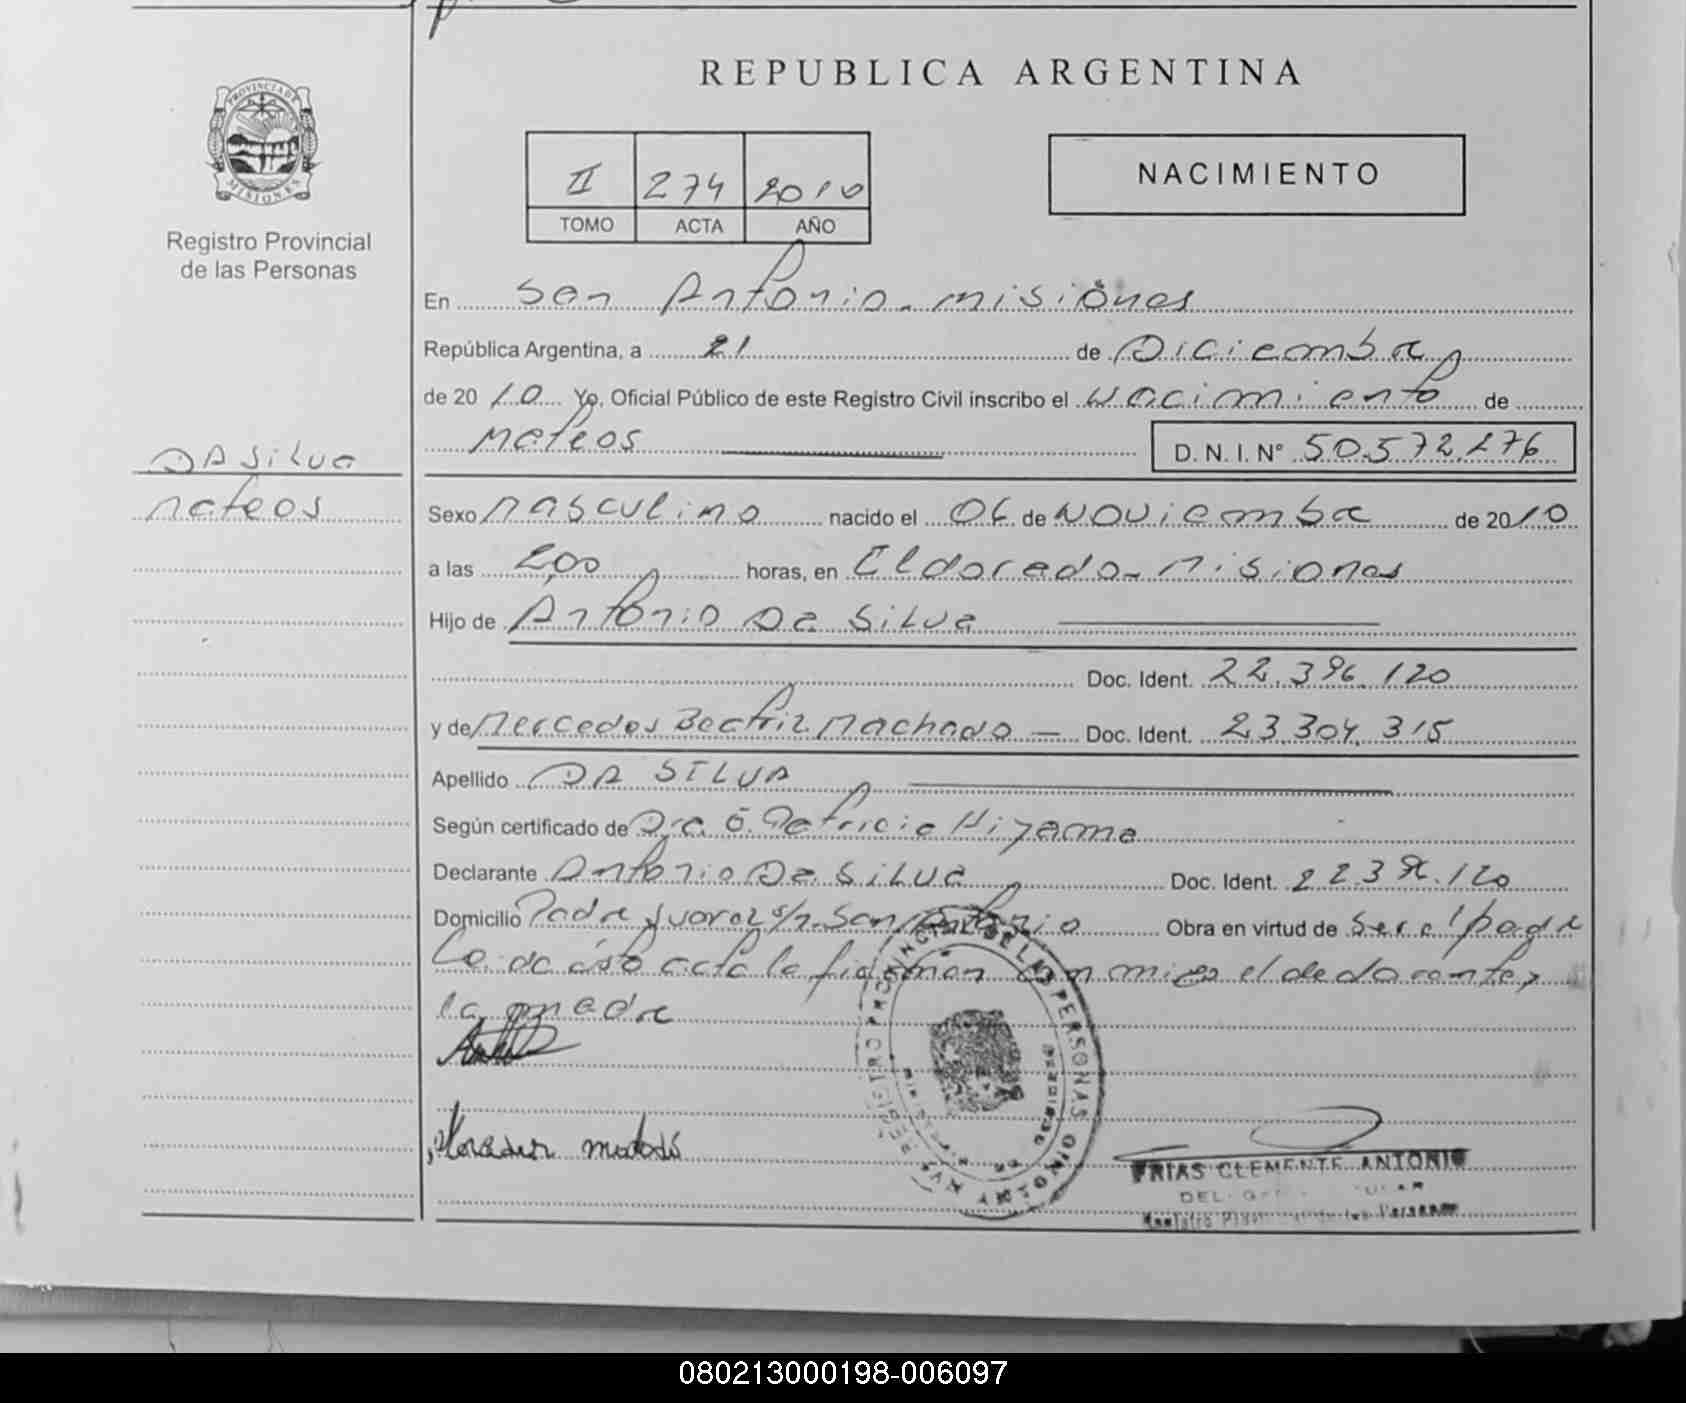 REPUBLICA ARGENTINA
PROVINCIA DE
MISIONES
Registro Provincial
de las Personas
II 274 2010
TOMO ACTA AÑO
NACIMIENTO
En San Antonio - Misiones
República Argentina, a 21 de Diciembre
de 2010 Yo, Oficial Público de este Registro Civil inscribo el Nacimiento de
Mateos D. N. I. Nº 50.572.276
DA Silva
Mateos
Sexo Masculino nacido el 06 de Noviembre de 2010
a las 2,00 horas, en Eldorado - Misiones
Hijo de Antonio Da Silva
Doc. Ident. 22.396.120
y de Mercedes Beatriz Machado — Doc. Ident. 23.304.315
Apellido DA SILVA
Según certificado de Dra. O. Patricia Hiyama
Declarante Antonio Da Silva Doc. Ident. 22.396.120
Domicilio Padre Juarez s/n San Antonio Obra en virtud de Ser el padre
Leida ésta acta la firman con migo el declarante y
la madre
REGISTRO PROVINCIAL DE LAS PERSONAS
FRIAS CLEMENTE ANTONIO
080213000198-006097